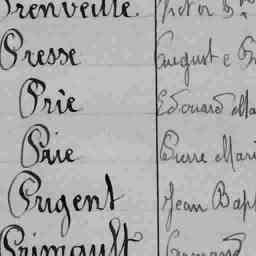 Prenveille. Victor
Presse August e
Prie Edouard Ma
Prie Pierre Mari
Prigent Jean Bapt
Primault